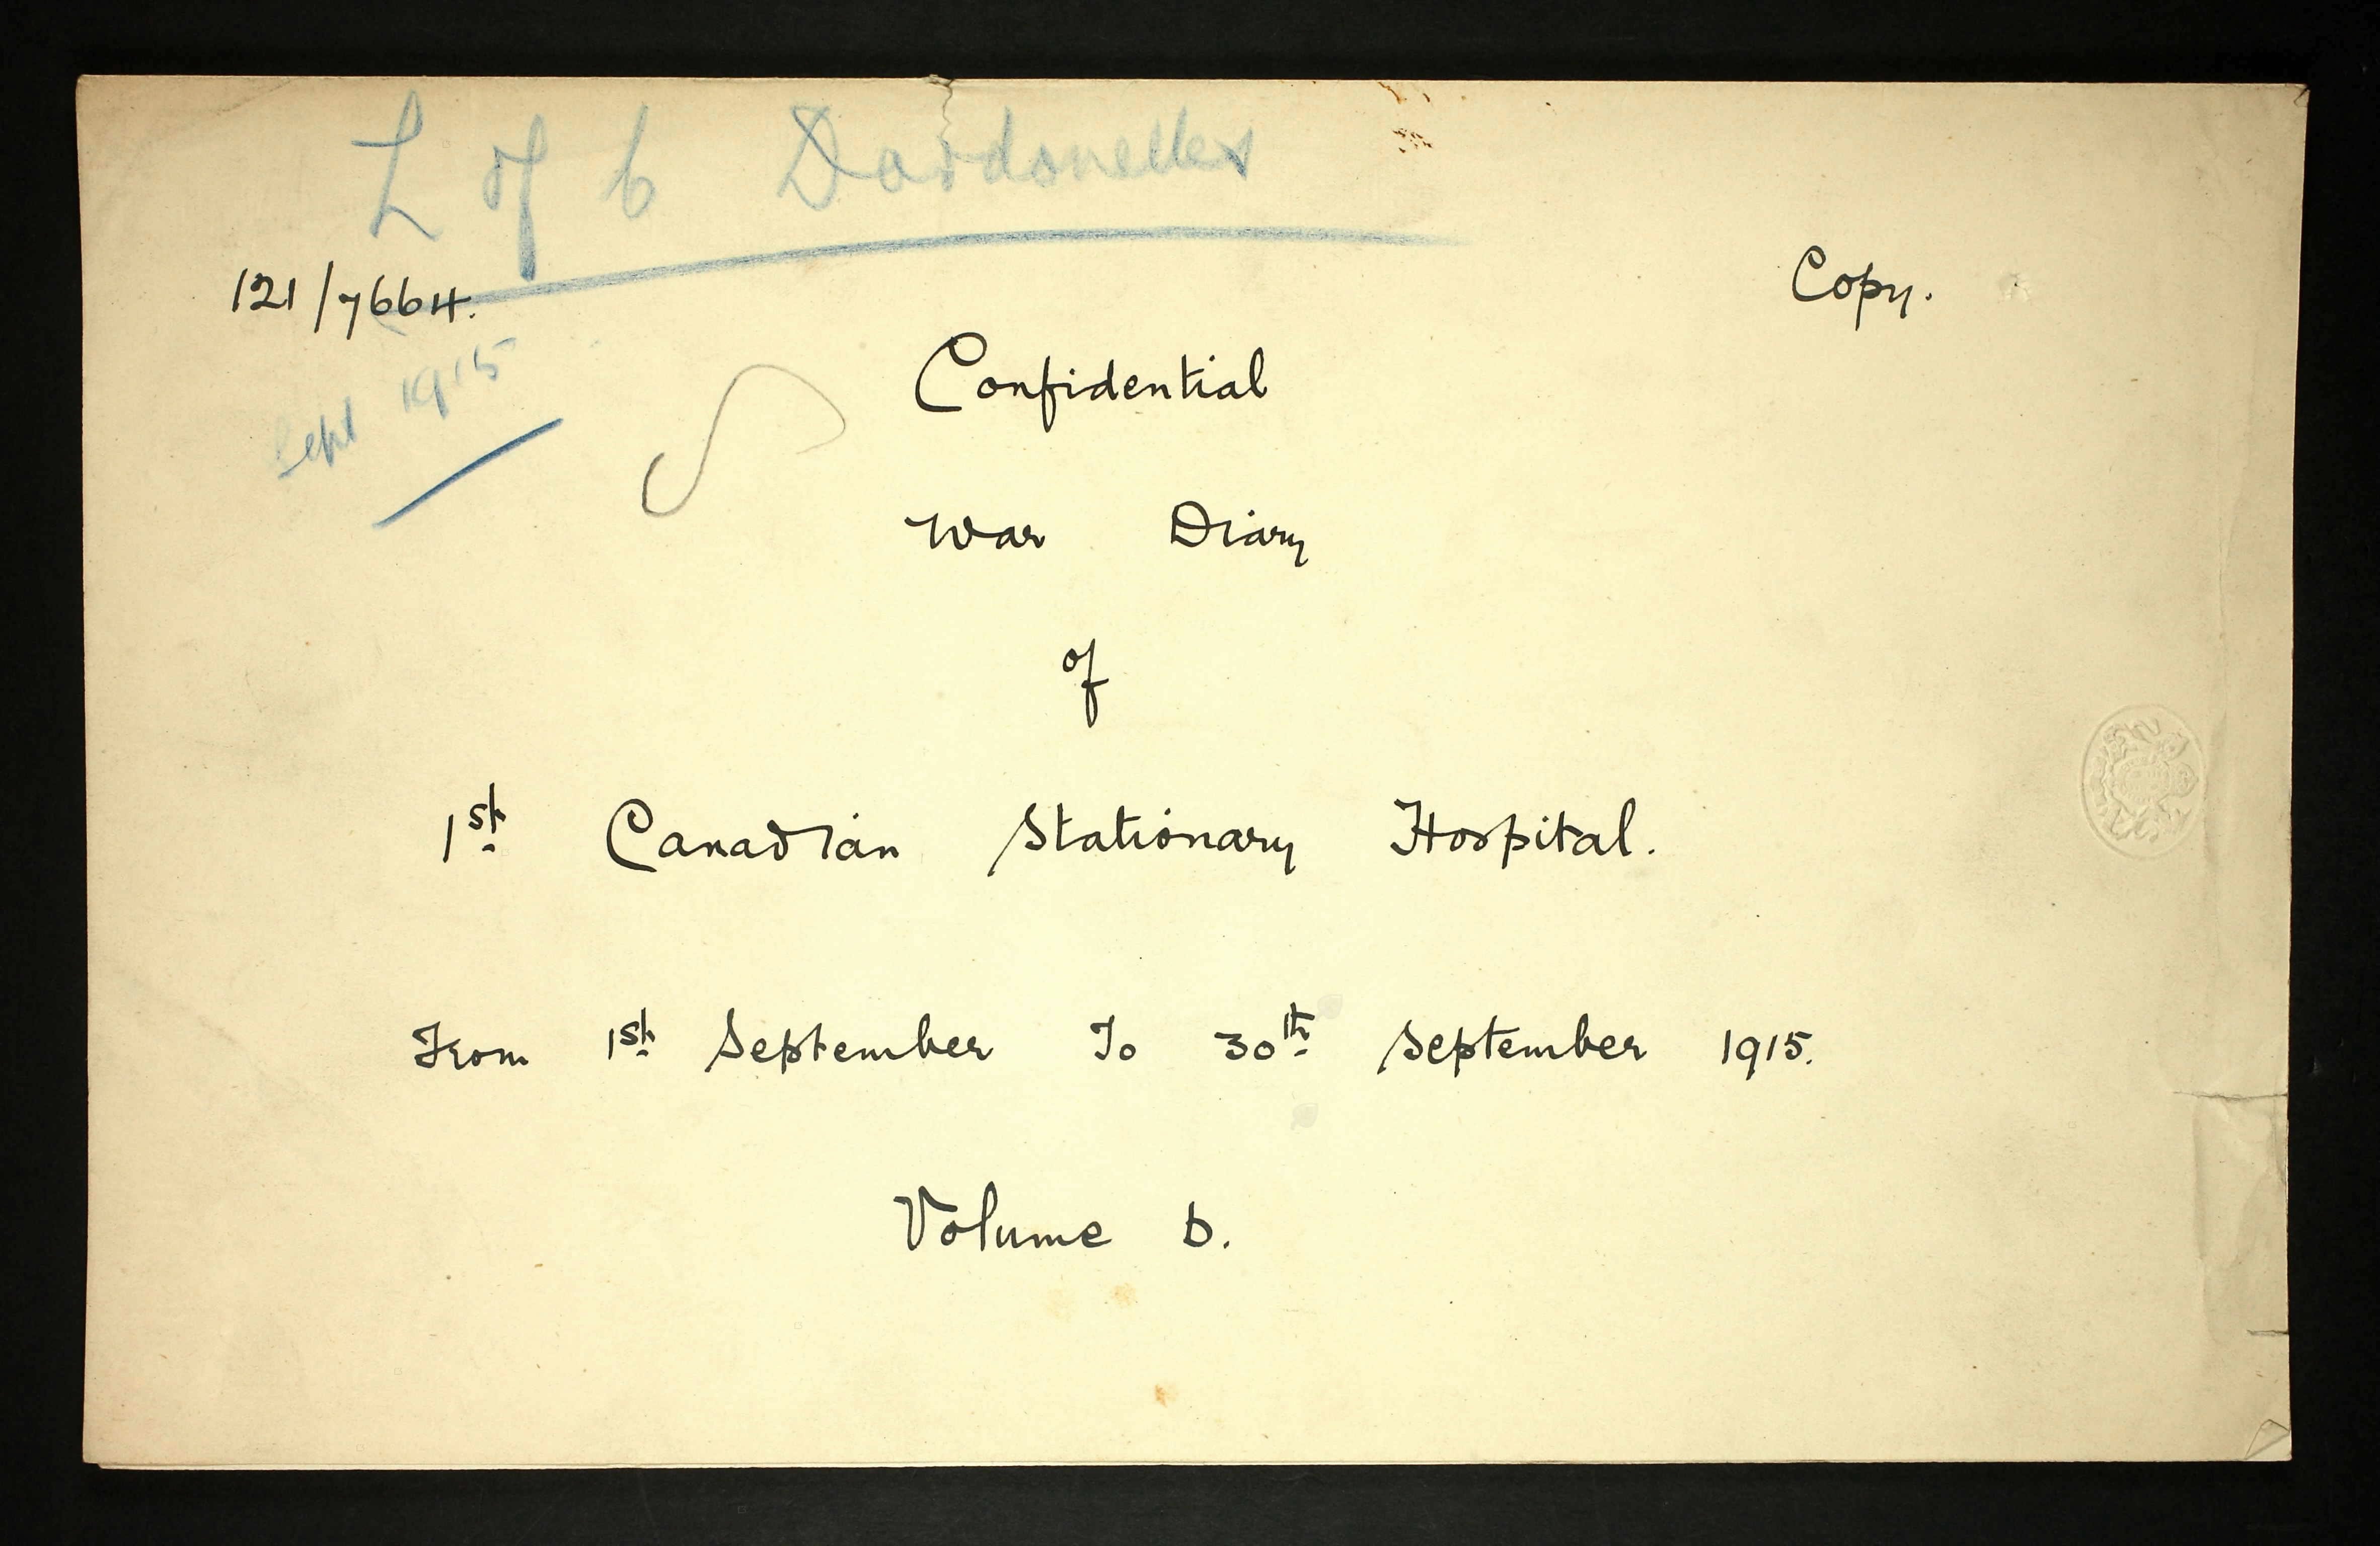 L of C Dardonelles
121/7664.
Copy.
Sept 1915
Confidential
War Diary
of
1st Canadian Stationary Hospital.
From 1st September To 30th September 1915.
Volume D.